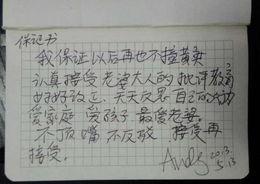 保证书
我保证以后再也不撞黄卖
认真接受老婆大人的批评教育
好好改正 天天反思自己的
爱家庭 爱孩子 最爱老婆。
不顶嘴 不反驳 接受再
接受。
Andy 2013.
5.13